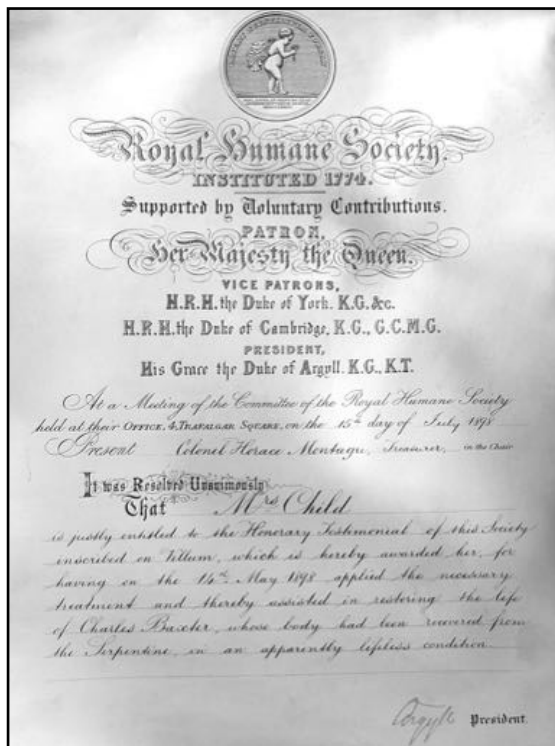 Royal Humane Society.
INSTITUTED 1774.
Supported by Voluntary Contributions.
PATRON,
Her Majesty the Queen.
VICE PATRONS,
H.R.H. the Duke of York. K.G. &c.
H.R.H. the Duke of Cambridge, K.G., G.C.M.G.
PRESIDENT,
His Grace the Duke of Argyll. K.G., K.T.
At a Meeting of the Committee of the Royal Humane Society
held at their OFFICE, 4, TRAFALGAR SQUARE, on the 15th day of July 1898
Present Colonel Horace Montagu, Treasurer, in the Chair
It was Resolved Unanimously
That Mrs Child
is justly entitled to the Honorary Testimonial of this Society
inscribed on Vellum, which is hereby awarded her, for
having on the 14th May 1898 applied the necessary
treatment and thereby assisted in restoring the life
of Charles Baxter, whose body had been recovered from
the Serpentine, in an apparently lifeless condition.
Argyll President.